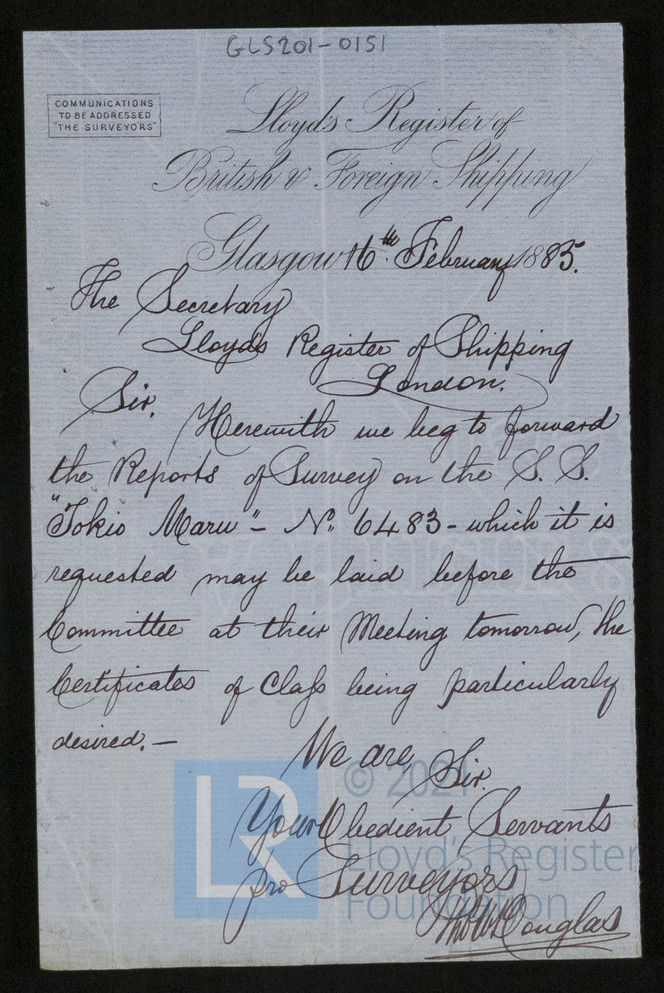 GLS201-0151
COMMUNICATIONS
TO BE ADDRESSED
"THE SURVEYORS"
Lloyd's Register of
British & Foreign Shipping
Glasgow 16th February 1885.
The Secretary
Lloyd's Register of Shipping
London.
Sir,
Herewith we beg to forward
the Reports of Survey on the S. S.
"Tokio Maru" - No. 6483 - which it is
requested may be laid before the
Committee at their Meeting tomorrow, the
Certificates of Class being particularly
desired. —
We are, Sir,
Your Obedient Servants
pro Surveyors
Douglas
LR
© 2021
Lloyd's Register
Foundation